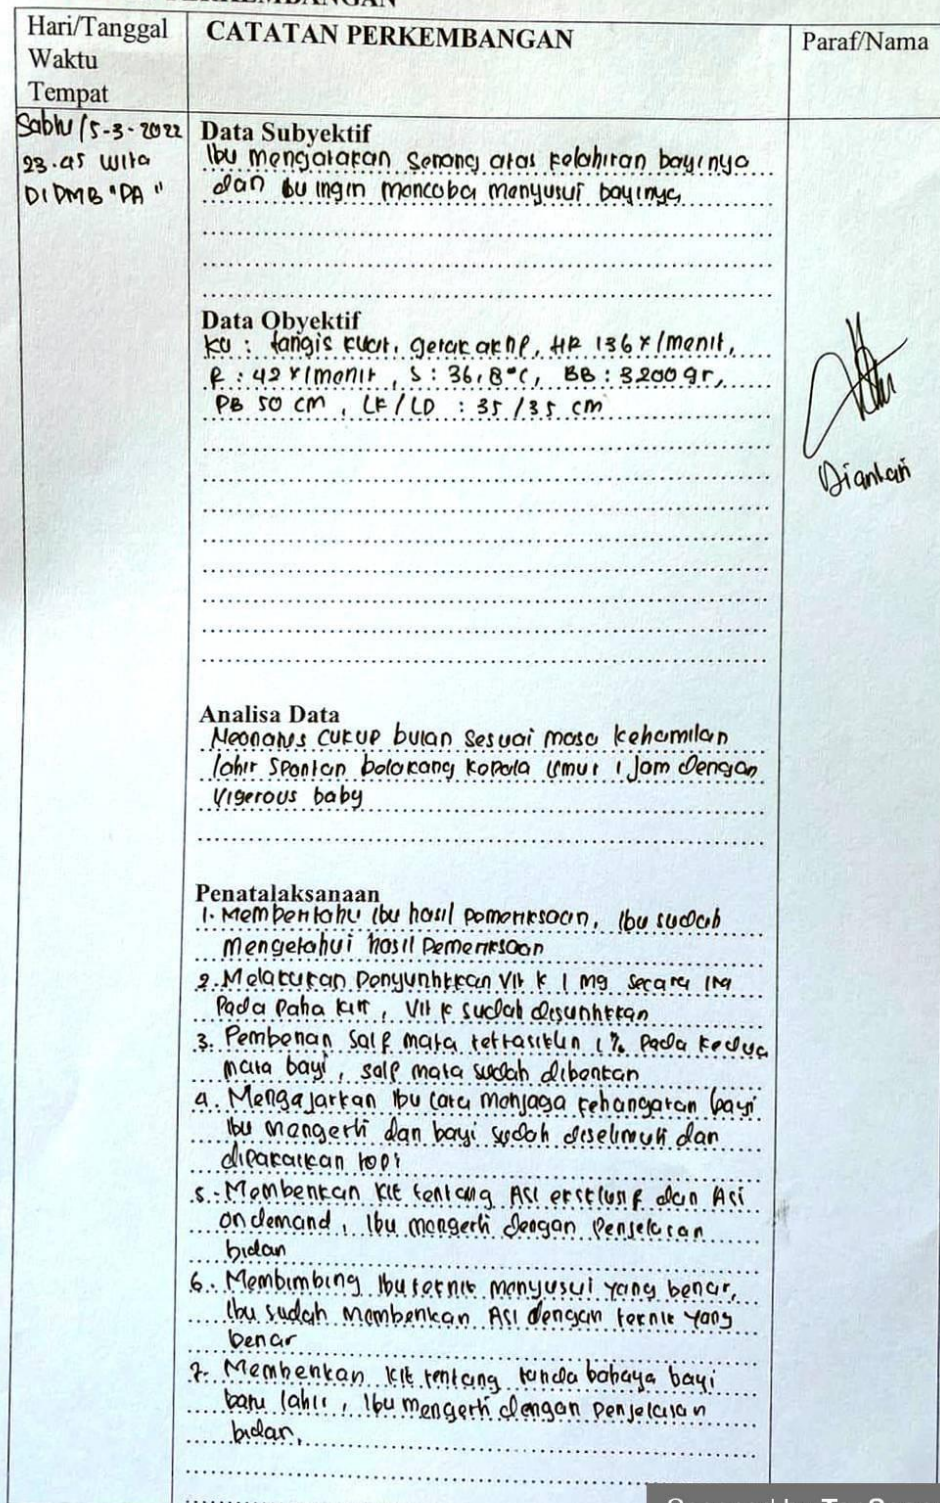 Hari/Tanggal
Waktu
Tempat
CATATAN PERKEMBANGAN
Paraf/Nama
Sabtu/5-3-2022
23.45 wita
Di PMB "PA"
Data Subyektif
Ibu mengatakan senang atas kelahiran bayinya
dan ibu ingin mencoba menyusui bayinya
Data Obyektif
KU : tangis kuat, gerak aktif, HR 136 x/menit,
R : 42 x/menit, S : 36,8°C, BB : 3200 gr,
PB 50 cm, LK/LD : 35/35 cm
Diantari
Analisa Data
Neonatus cukup bulan sesuai masa kehamilan
lahir spontan belakang kepala umur 1 jam dengan
vigerous baby
Penatalaksanaan
1. Memberitahu ibu hasil pemeriksaan, ibu sudah
mengetahui hasil pemeriksaan
2. Melakukan penyuntikkan Vit K 1 mg secara IM
pada paha kiri, Vit K sudah disuntikkan
3. Pemberian salf mata tetrasiklin 1% pada kedua
mata bayi, salf mata sudah diberikan
4. Mengajarkan ibu cara menjaga kehangatan bayi
ibu mengerti dan bayi sudah diselimuti dan
dipakaikan topi
5. Memberikan KIE tentang ASI eksklusif dan ASI
on demand, ibu mengerti dengan penjelasan
bidan
6. Membimbing ibu teknik menyusui yang benar,
ibu sudah memberikan ASI dengan teknik yang
benar
7. Memberikan KIE tentang tanda bahaya bayi
baru lahir, ibu mengerti dengan penjelasan
bidan,